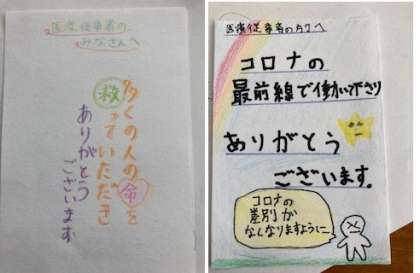 医療従事者の
みなさんへ
多くの人の命を
救っていただき
ありがとう
ございます
医療従事者の方々へ
コロナの
最前線で働いて下さり
ありがとう
ございます。
コロナの
差別が
なくなりますように